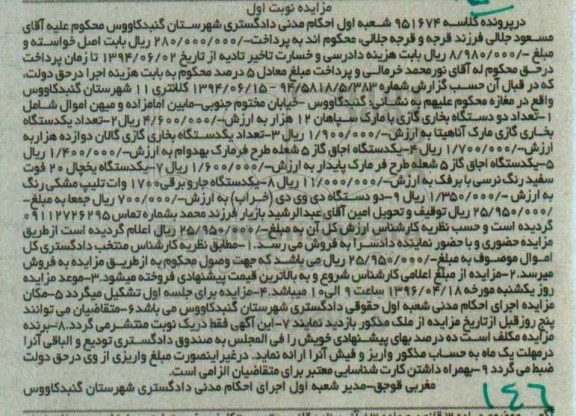 مزایده نوبت اول
درپرونده کلاسه ۹۵۱۶۷۴ شعبه اول احکام مدنی دادگستری شهرستان گنبدکاووس محکوم علیه آقای
مسعود جلالی فرزند قرجه و قرجه جلالی، محکوم اند به پرداخت-/۲۸۰/۰۰۰/۰۰۰ ریال بابت اصل خواسته و
مبلغ -/۸/۹۸۰/۰۰۰ ریال بابت هزینه دادرسی و خسارت تاخیر تادیه از تاریخ ۱۳۹۴/۰۶/۰۲ تا زمان پرداخت
درحق محکوم له آقای نورمحمد خرمالی و پرداخت مبلغ معادل ۵ درصد محکوم به بابت هزینه اجرا درحق دولت،
که در قبال آن حسب گزارش شماره ۹۴/۵۸۱۸/۵/۳۸۳ - ۱۳۹۴/۰۶/۱۵ کلانتری ۱۱ شهرستان گنبدکاووس
واقع در مغازه محکوم علیهم به نشانی: گنبدکاووس -خیابان مختوم جنوبی-مابین امامزاده و میهن اموال شامل
۱-تعداد دو دستگاه بخاری گازی با مارک سپاهان ۱۲ هزار به ارزش-/۴/۶۰۰/۰۰۰ ریال۲-تعداد یکدستگاه
بخاری گازی مارک آناهیتا به ارزش-/۱/۹۰۰/۰۰۰ ریال ۳-تعداد یکدستگاه بخاری گازی گالان دوازده هزاربه
ارزش-/۱/۷۰۰/۰۰۰ ریال ۴-یکدستگاه اجاق گاز ۵ شعله طرح فرمارک بهدوام به ارزش-/۱/۴۰۰/۰۰۰ ریال
۵-یکدستگاه اجاق گاز ۵ شعله طرح فر مارک پایدار به ارزش-/۱/۶۰۰/۰۰۰ ریال ۷-یکدستگاه یخچال ۲۰ فوت
سفید رنگ نرسی با برفک به ارزش-/۱۱/۰۰۰/۰۰۰ ریال ۸-یکدستگاه جارو برقی ۱۷۰۰ وات تلیپ مشکی رنگ
به ارزش -/۱/۳۵۰/۰۰۰ ریال ۹-دو دستگاه دی وی دی (خراب) به ارزش-/۷۰۰/۰۰۰ ریال جمعا به مبلغ-
/۲۵/۹۵۰/۰۰۰ ریال توقیف و تحویل امین آقای عبدالرشید بازیار فرزند محمد بشماره تماس ۰۹۱۱۲۷۲۶۲۹۵
گردیده است و حسب نظریه کارشناس ارزش کل آن به مبلغ-/۲۵/۹۵۰/۰۰۰ ریال اعلام گردیده است ازطریق
مزایده حضوری و با حضور نماینده دادسرا به فروش می رسد. ۱-مطابق نظریه کارشناس منتخب دادگستری کل
اموال موصوف به مبلغ-/۲۵/۹۵۰/۰۰۰ ریال می باشد که جهت وصول محکوم به ازطریق مزایده به فروش
میرسد.۲-مزایده از مبلغ اعلامی کارشناس شروع و به بالاترین قیمت پیشنهادی فروخته میشود.۳-موعد مزایده
روز یکشنبه مورخه ۱۳۹۶/۰۴/۱۸ ساعت ۹ الی۱۰ میباشد.۴-مزایده برای جلسه اول تشکیل میگردد ۵-مکان
مزایده اجرای احکام مدنی شعبه اول حقوقی دادگستری شهرستان گنبدکاووس می باشد۶-متقاضیان می توانند
پنج روزقبل ازتاریخ مزایده از ملک مذکور بازدید نمایند ۷-این آگهی فقط دریک نوبت منتشرمی گردد.۸-برنده
مزایده مکلف است ده درصد بهای پیشنهادی خویش را فی المجلس به صندوق دادگستری تودیع و الباقی آنرا
درمهلت یک ماه به حساب مذکور واریز و فیش آنرا ارائه نماید. درغیراینصورت مبلغ واریزی از وی درحق دولت
ضبط می گردد ۹-بهمراه داشتن کارت شناسایی معتبر برای متقاضیان الزامی است.
مغربی قوجق-مدیر شعبه اول اجرای احکام مدنی دادگستری شهرستان گنبدکاووس
۱۴۶